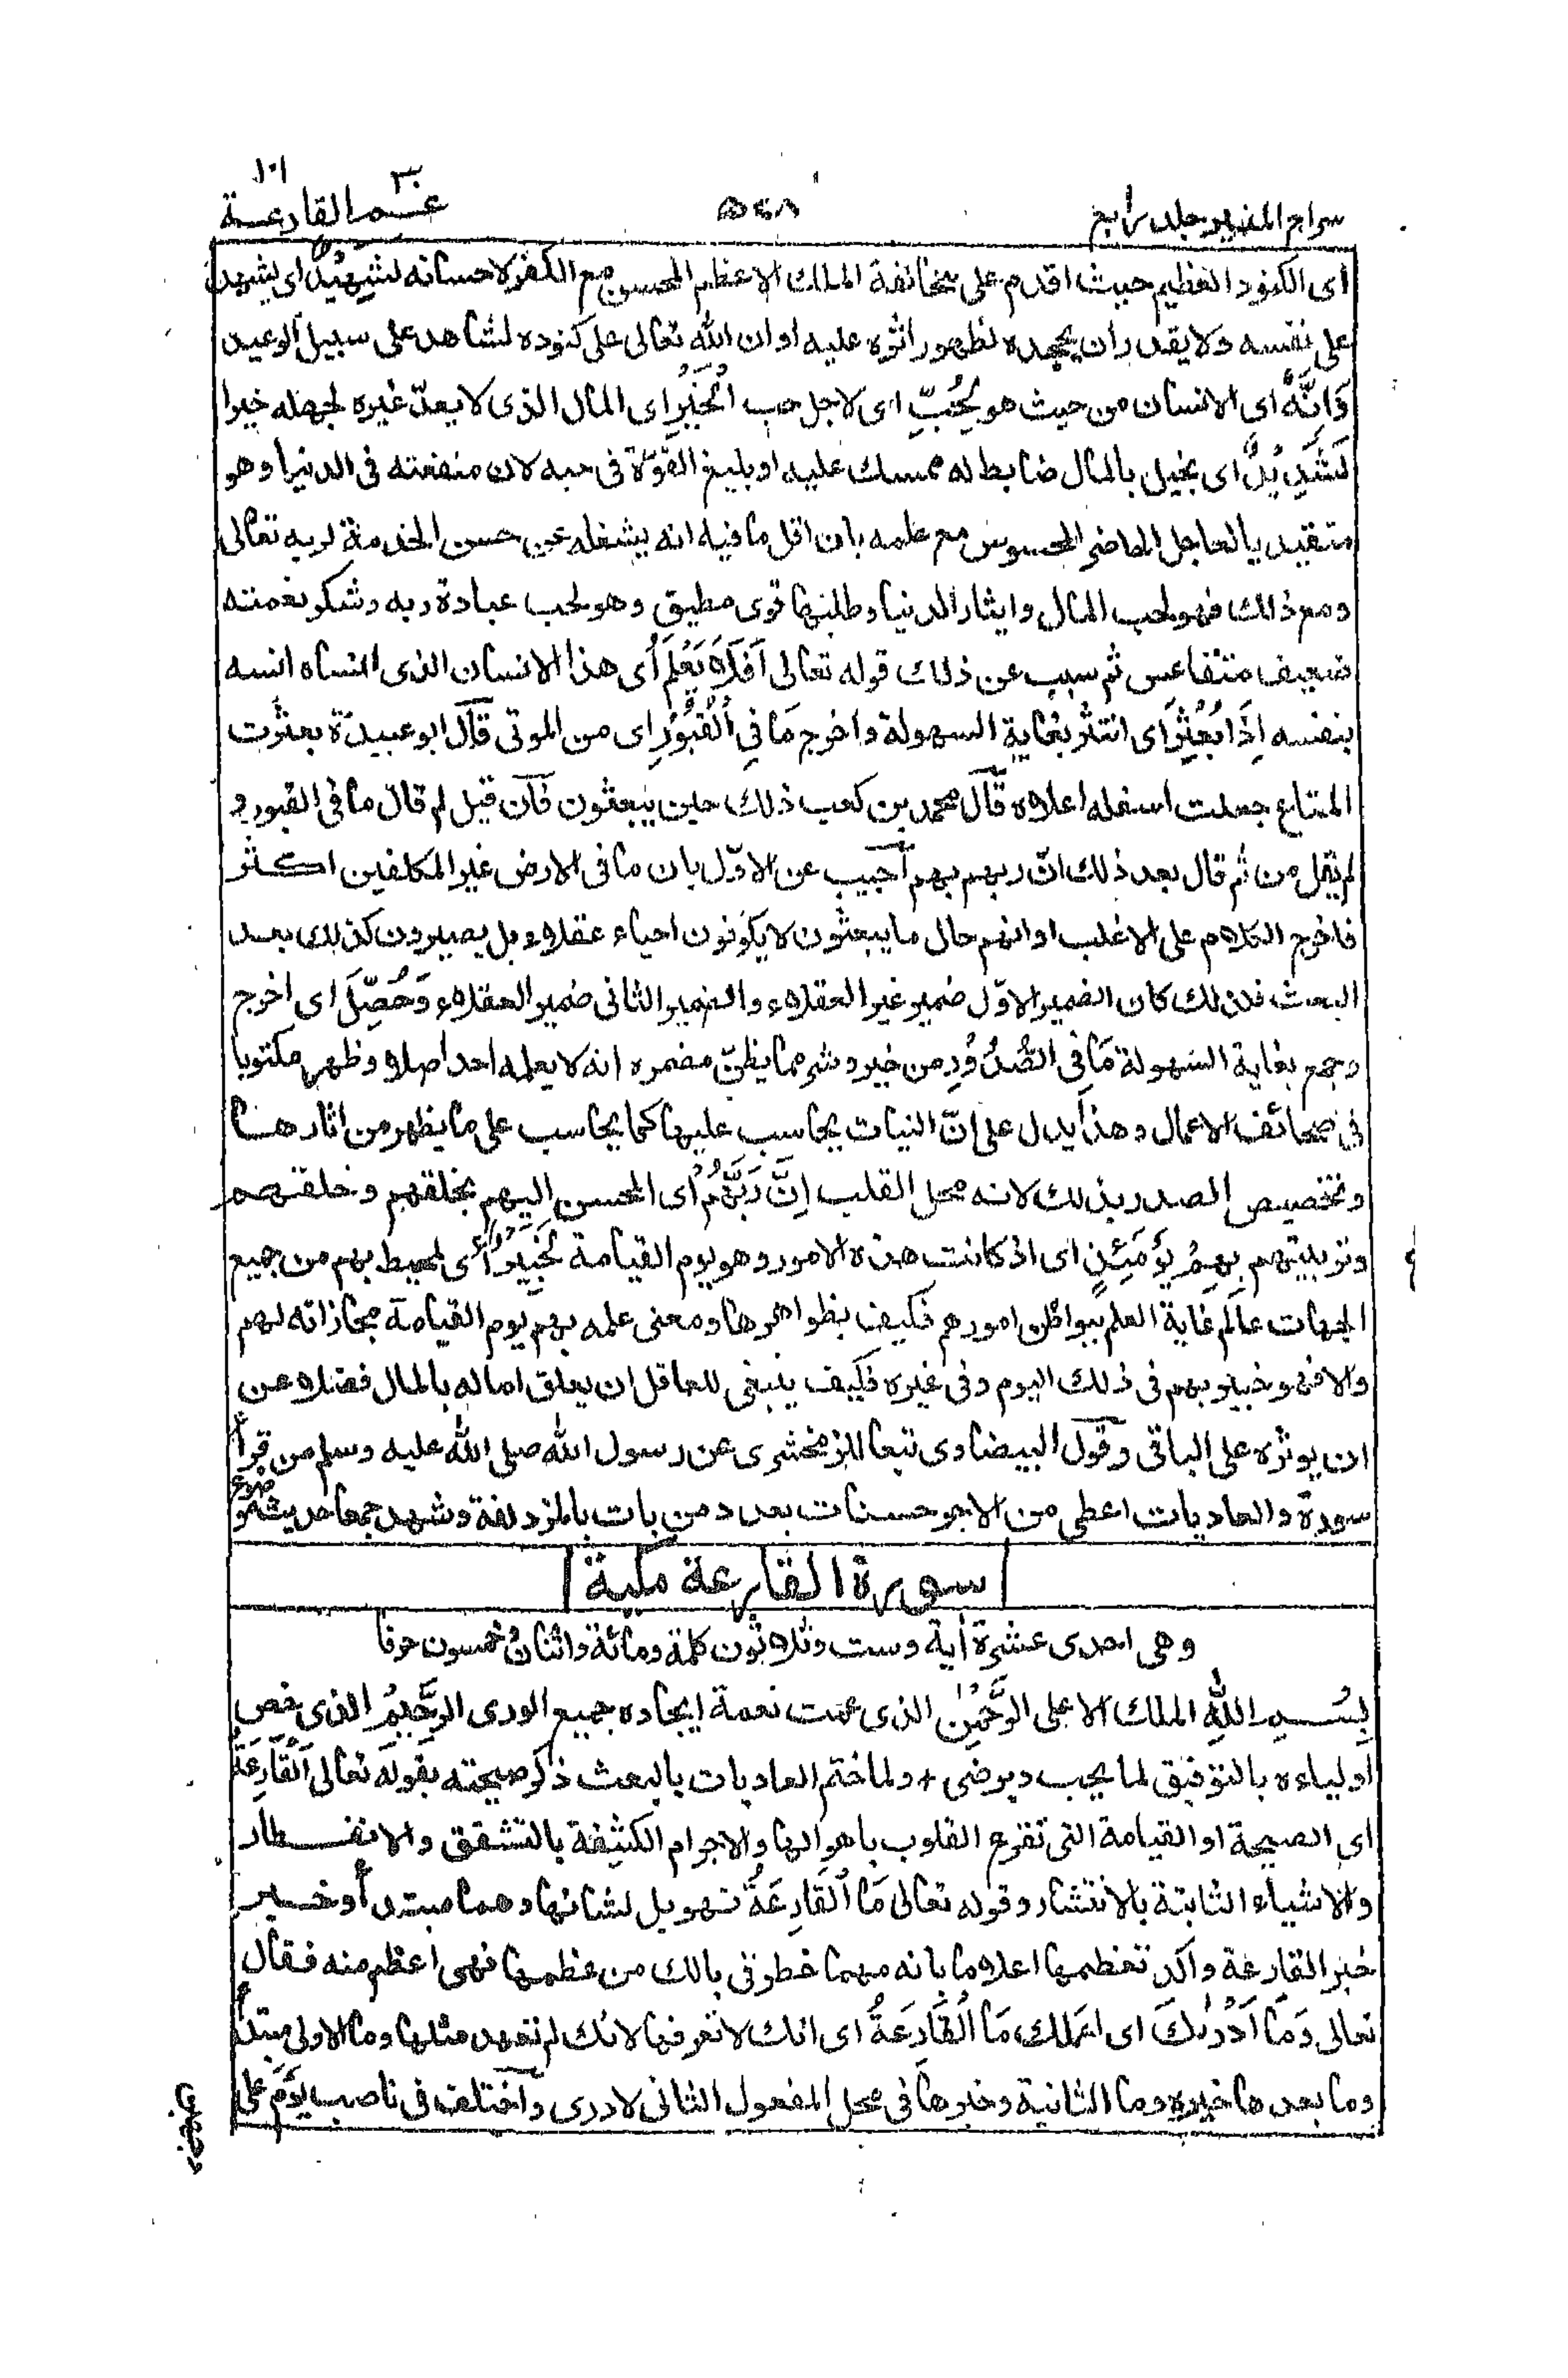 سراج المنير جلد رابع
٥٤٨
عم القارعة
٣٠
١٠١
اى الكنود العظيم حيث اقدم على مخالفة الملك الاعظم المحسن مع الكفر لاحسانه لَشَهِيْدٌ اى يشهد
على نفسه ولا يقدر ان يجحده لظهور اثره عليه او ان الله تعالى على كنوده لشاهد على سبيل الوعيد
وَاِنَّهٗ اى الانسان من حيث هو لِحُبِّ اى لاجل حب الْخَيْرِ اى المال الذى لا يعدّ غيره لجهله خيرا
لَشَدِيْدٌ اى بخيل بالمال ضابط له ممسك عليه او بليغ القوّة فى حبه لان منفعته فى الدنيا وهو
متقيد بالعاجل الحاضر المحسوس مع علمه بان اقل ما فيه انه يشغله عن حسن الخدمة لربه تعالى
ومع ذلك فهو لحب المال وايثار الدنيا وطلبها قوى مطيق وهو لحب عبادة ربه وشكر نعمته
ضعيف متقاعس ثم سبب عن ذلك قوله تعالى اَفَلَا يَعْلَمُ اى هذا الانسان الذى انساه انسه
بنفسه اِذَا بُعْثِرَ اى انتثر بغاية السهولة واخرج مَا فِى الْقُبُوْرِ اى من الموتى قال ابو عبيدة بعثرت
المتاع جعلت اسفله اعلاه قال محمد بن كعب ذلك حين يبعثون فان قيل لم قال ما فى القبور و
لم يقل من ثم قال بعد ذلك انّ ربهم بهم اجيب عن الاوّل بان ما فى الارض غير المكلفين اكثر
فاخرج الكلام على الاغلب او انهم حال ما يبعثون لا يكونون احياء عقلاء بل يصيرون كذلك بعد
البعث فلذلك كان الضمير الاوّل ضمير غير العقلاء والضمير الثانى ضمير العقلاء وَحُصِّلَ اى اخرج
وجمع بغاية السهولة مَا فِى الصُّدُوْرِ من خير وشر مما يظنّ مضمره انه لا يعلمه احد اصلا وظهر مكتوبا
فى صحائف الاعمال وهذا يدل على انّ النيات يحاسب عليها كما يحاسب على ما يظهر من اثارها
وتخصيص الصدر بذلك لانه محل القلب اِنَّ رَبَّهُمْ اى المحسن اليهم بخلقهم وخلقهم
وتربيتهم بِهِمْ يَوْمَئِذٍ اى اذ كانت هذه الامور وهو يوم القيامة لَّخَبِيْرٌ اى لمحيط بهم من جميع
الجهات عالم غاية العلم ببواطن امورهم فكيف بظواهرها ومعنى علمه بهم يوم القيامة مجازاته لهم
والا فهو خبير بهم فى ذلك اليوم وفى غيره فكيف ينبغى للعاقل ان يعلق اماله بالمال فضلا عن
ان يوثره على الباقى وقول البيضاوى تبعا للزمخشرى عن رسول الله صلى الله عليه وسلم من قرأ
سورة والعاديات اعطى من الاجر حسنات بعدد من بات بالمزدلفة وشهد جمعا حديث موضوع
سورة القارعة مكية
وهى احدى عشرة اٰية وست وثلاثون كلمة ومائة واثنان وخمسون حرفا
بِسْمِ اللهِ الملك الاعلى الرَّحْمٰنِ الذى عمت نعمة ايجاده جميع الورى الرَّحِيْمِ الذى خص
اولياءه بالتوفيق لما يحب ويرضى + ولما ختم العاديات بالبعث ذكر صيحته بقوله تعالى اَلْقَارِعَةُ
اى الصيحة او القيامة التى تقرع القلوب باهوالها والاجرام الكثيفة بالتشقق والانفطار
والاشياء الثابتة بالانتشار وقوله تعالى مَا الْقَارِعَةُ تهويل لشانها وهما مبتدأ وخبر
خبر القارعة واكد تعظيمها اعلاما بانه مهما خطر فى بالك من عظمها فهى اعظم منه فقال
تعالى وَمَآ اَدْرٰىكَ اى اعلمك مَا الْقَارِعَةُ اى انك لا تعرفها لانك لم تعهد مثلها وما الاولى مبتدأ
وما بعدها خبره وما الثانية وخبرها فى محل المفعول الثانى لادرى واختلف فى ناصب يَوْمَ على